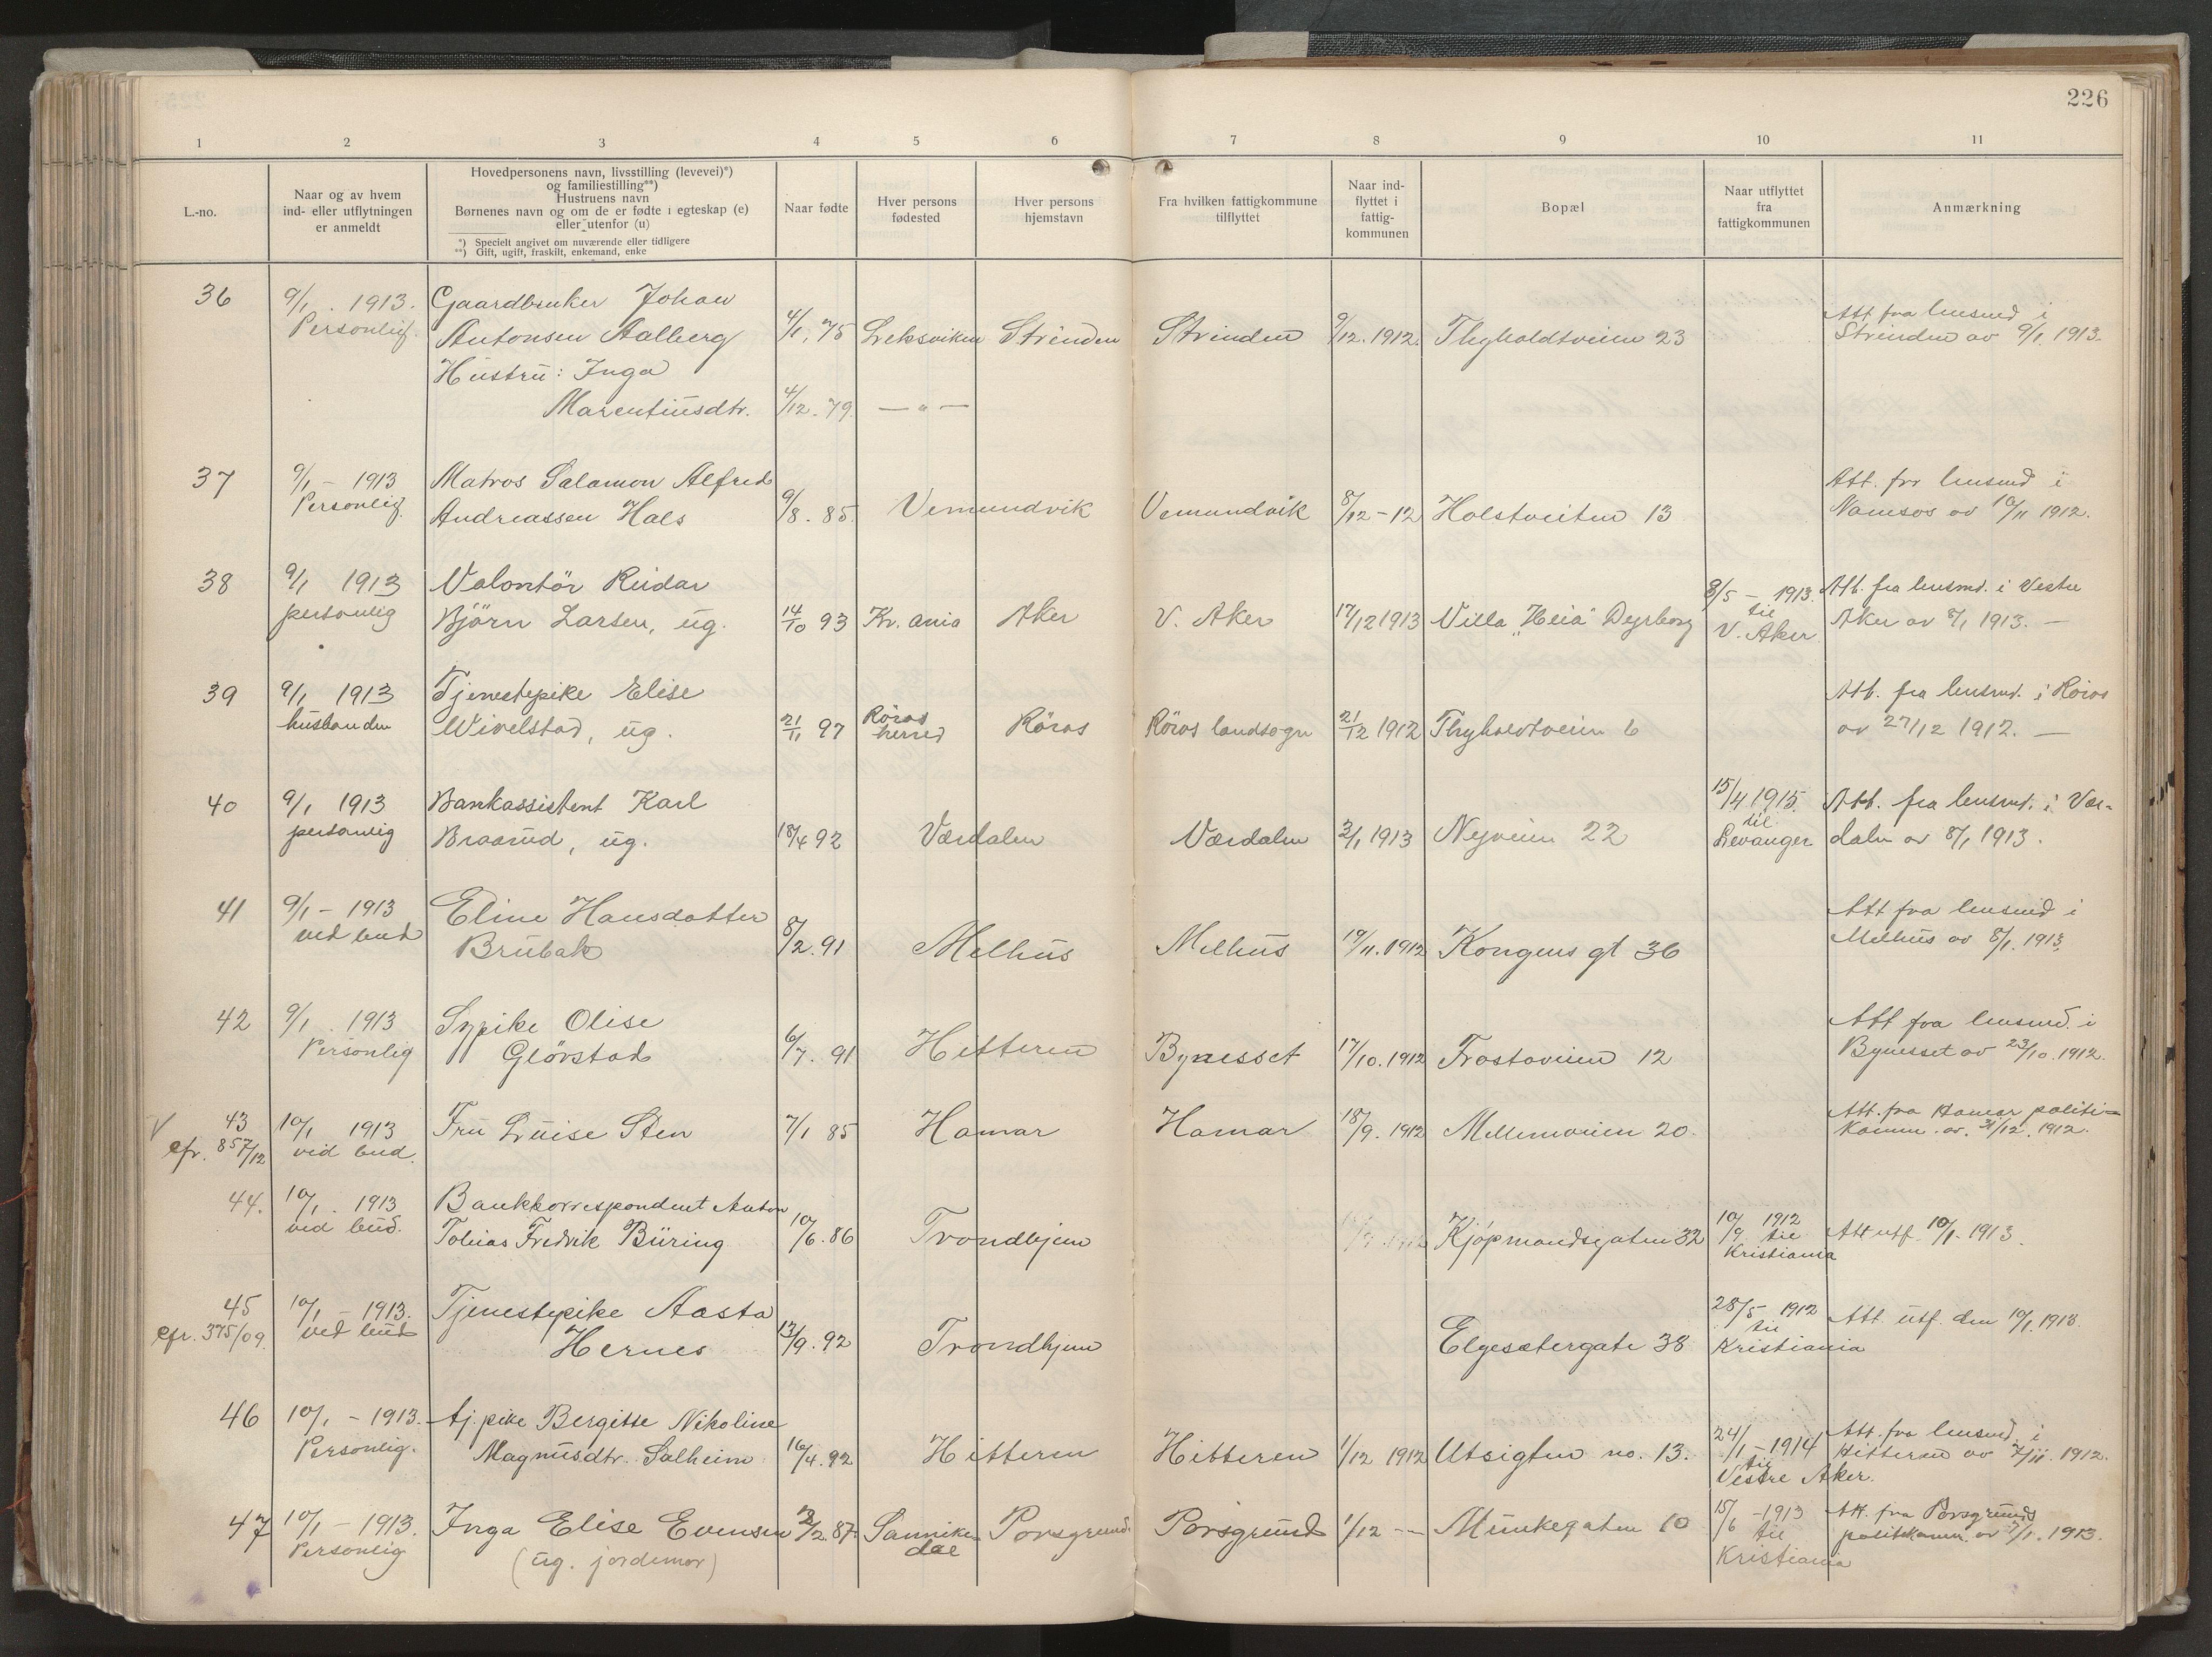 226
1 2 3 4 5 6 7 8 9 10 11
L.-no.
Naar og av hvem
ind- eller utflytningen
er anmeldt
Hovedpersonens navn, livsstilling (levevei)*)
og familiestilling**)
Hustruens navn
Børnenes navn og om de er fødte i egteskap (e)
eller utenfor (u)
*) Specielt angivet om nuværende eller tidligere
**) Gift, ugift, fraskilt, enkemand, enke
Naar fødte
Hver persons
fødested
Hver persons
hjemstavn
Fra hvilken fattigkommune
tilflyttet
Naar ind-
flyttet i
fattig-
kommunen
Bopæl
Naar utflyttet
fra
fattigkommunen
Anmærkning
36
9/1. 1913.
Personlig.
Gaardbruker Johan
Antonsen Aalberg
Hustru: Inga
Marentiusdtr.
4/1. 75
4/12. 79.
Leksviken
— " —
Strinden
Strinden
9/12. 1912.
Thyholdtveien 23
Att fra lensmd i
Strinden av 9/1. 1913.
37
9/1 - 1913
Personlig.
Matros Salamon Alfred
Andreassen Hals
9/8. 85.
Vemundvik
Vemundvik
8/12 - 12
Holstveiten 13
Att. fra lensmd i
Namsos av 19/11 1912.
38
9/1 1913
personlig
Volontör Reidar
Björn Larsen, ug.
14/10 93
Kr.ania
Aker
V. Aker
17/12 1913
Villa "Heia" Dyrborg
3/5 - 1913.
til
V. Aker
Att. fra lensmd. i Vestre
Aker av 8/1 1913. —
39
9/1 1913
husbonden
Tjenestepike Elise
Wivelstad, ug.
21/11 97
Röros
herred
Röros
Röros landsogn
21/12 1912
Thyholdtveien 6
Att. fra lensmd. i Röros
av 27/12 1912. —
40
9/1 1913
personlig
Bankassistent Karl
Braarud, ug.
18/4 92
Værdalen
Værdalen
3/1 1913
Nyveien 22
15/4 1915.
til
Levanger
Att. fra lensmd. i Vær-
dalen av 8/1 1913.
41
9/1 - 1913
ved bud
Eline Hansdatter
Brubak
8/2. 91
Melhus
Melhus
19/11. 1912
Kongens gt 36
Att fra lensmd i
Melhus av 8/1. 1913.
42
9/1. 1913
Personlig
Sypike Olise
Glörstad
6/7. 91
Hitteren
Bynesset
17/10. 1912
Frostaveien 12
Att fra lensmd. i
Bynesset av 23/10. 1912.
V 43
cfr. 857/12
10/1 1913
ved bud.
Fru Luise Sten
7/1 85
Hamar
Hamar
18/9. 1912
Mellemveien 20.
Att. fra Hamar politi-
kamm. av. 31/12. 1912.
44.
10/1. 1913
ved bud.
Bankkorrespondent Anton
Tobias Fredrik Büring
10/6. 86
Trondhjem
Kjøpmandsgaten 32
10/9 1912
til
Kristiania
Att utf. 10/1. 1913.
45
cfr. 375/09.
10/1 - 1913.
ved bud
Tjenestepike Aasta
Hernes
13/9. 92
Trondhjem
Elgesætergate 38
28/5 1912
til
Kristiania
Att. utf. den 10/1. 1913.
46
10/1 - 1913.
Personlig.
Tj.pike Bergitte Nikoline
Magnusdtr. Salheim
16/4. 92
Hitteren
Hitteren
1/12 1912
Utsigten no. 13.
24/1 - 1914
til
Vestre Aker.
Att. fra lensmd. i
Hitteren av 7/11. 1912.
47
10/1 - 1913.
Personlig
Inga Elise Evensen
(ug. jordemor)
2/2. 87.
Sannike-
dal
Porsgrund.
Porsgrund
1/12 --
Munkegaten 10
15/6 - 1913
til
Kristiania
Att. fra Porsgrunds
politikamm. av 7/1. 1913.